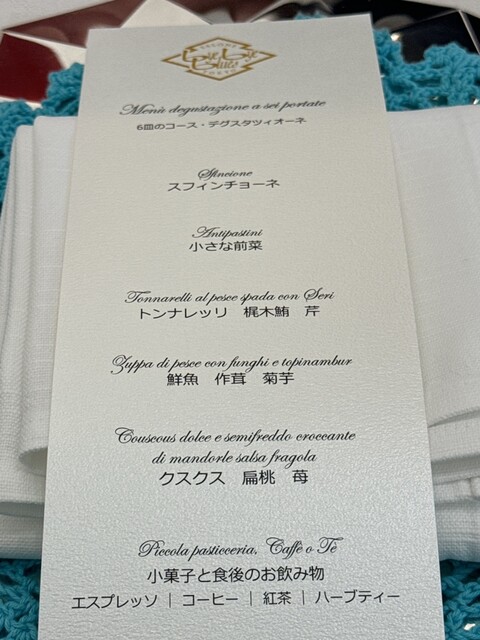 Menù degustazione a sei portate
6皿のコース・デグスタツィオーネ
Sfincione
スフィンチョーネ
Antipastini
小さな前菜
Tonnarelli al pesce spada con Seri
トンナレッリ　梶木鮪　芹
Zuppa di pesce con funghi e topinambur
鮮魚　作茸　菊芋
Couscous dolce e semifreddo croccante
di mandorle salsa fragola
クスクス　扁桃　苺
Piccola pasticceria, Caffè o Tè
小菓子と食後のお飲み物
エスプレッソ | コーヒー | 紅茶 | ハーブティー